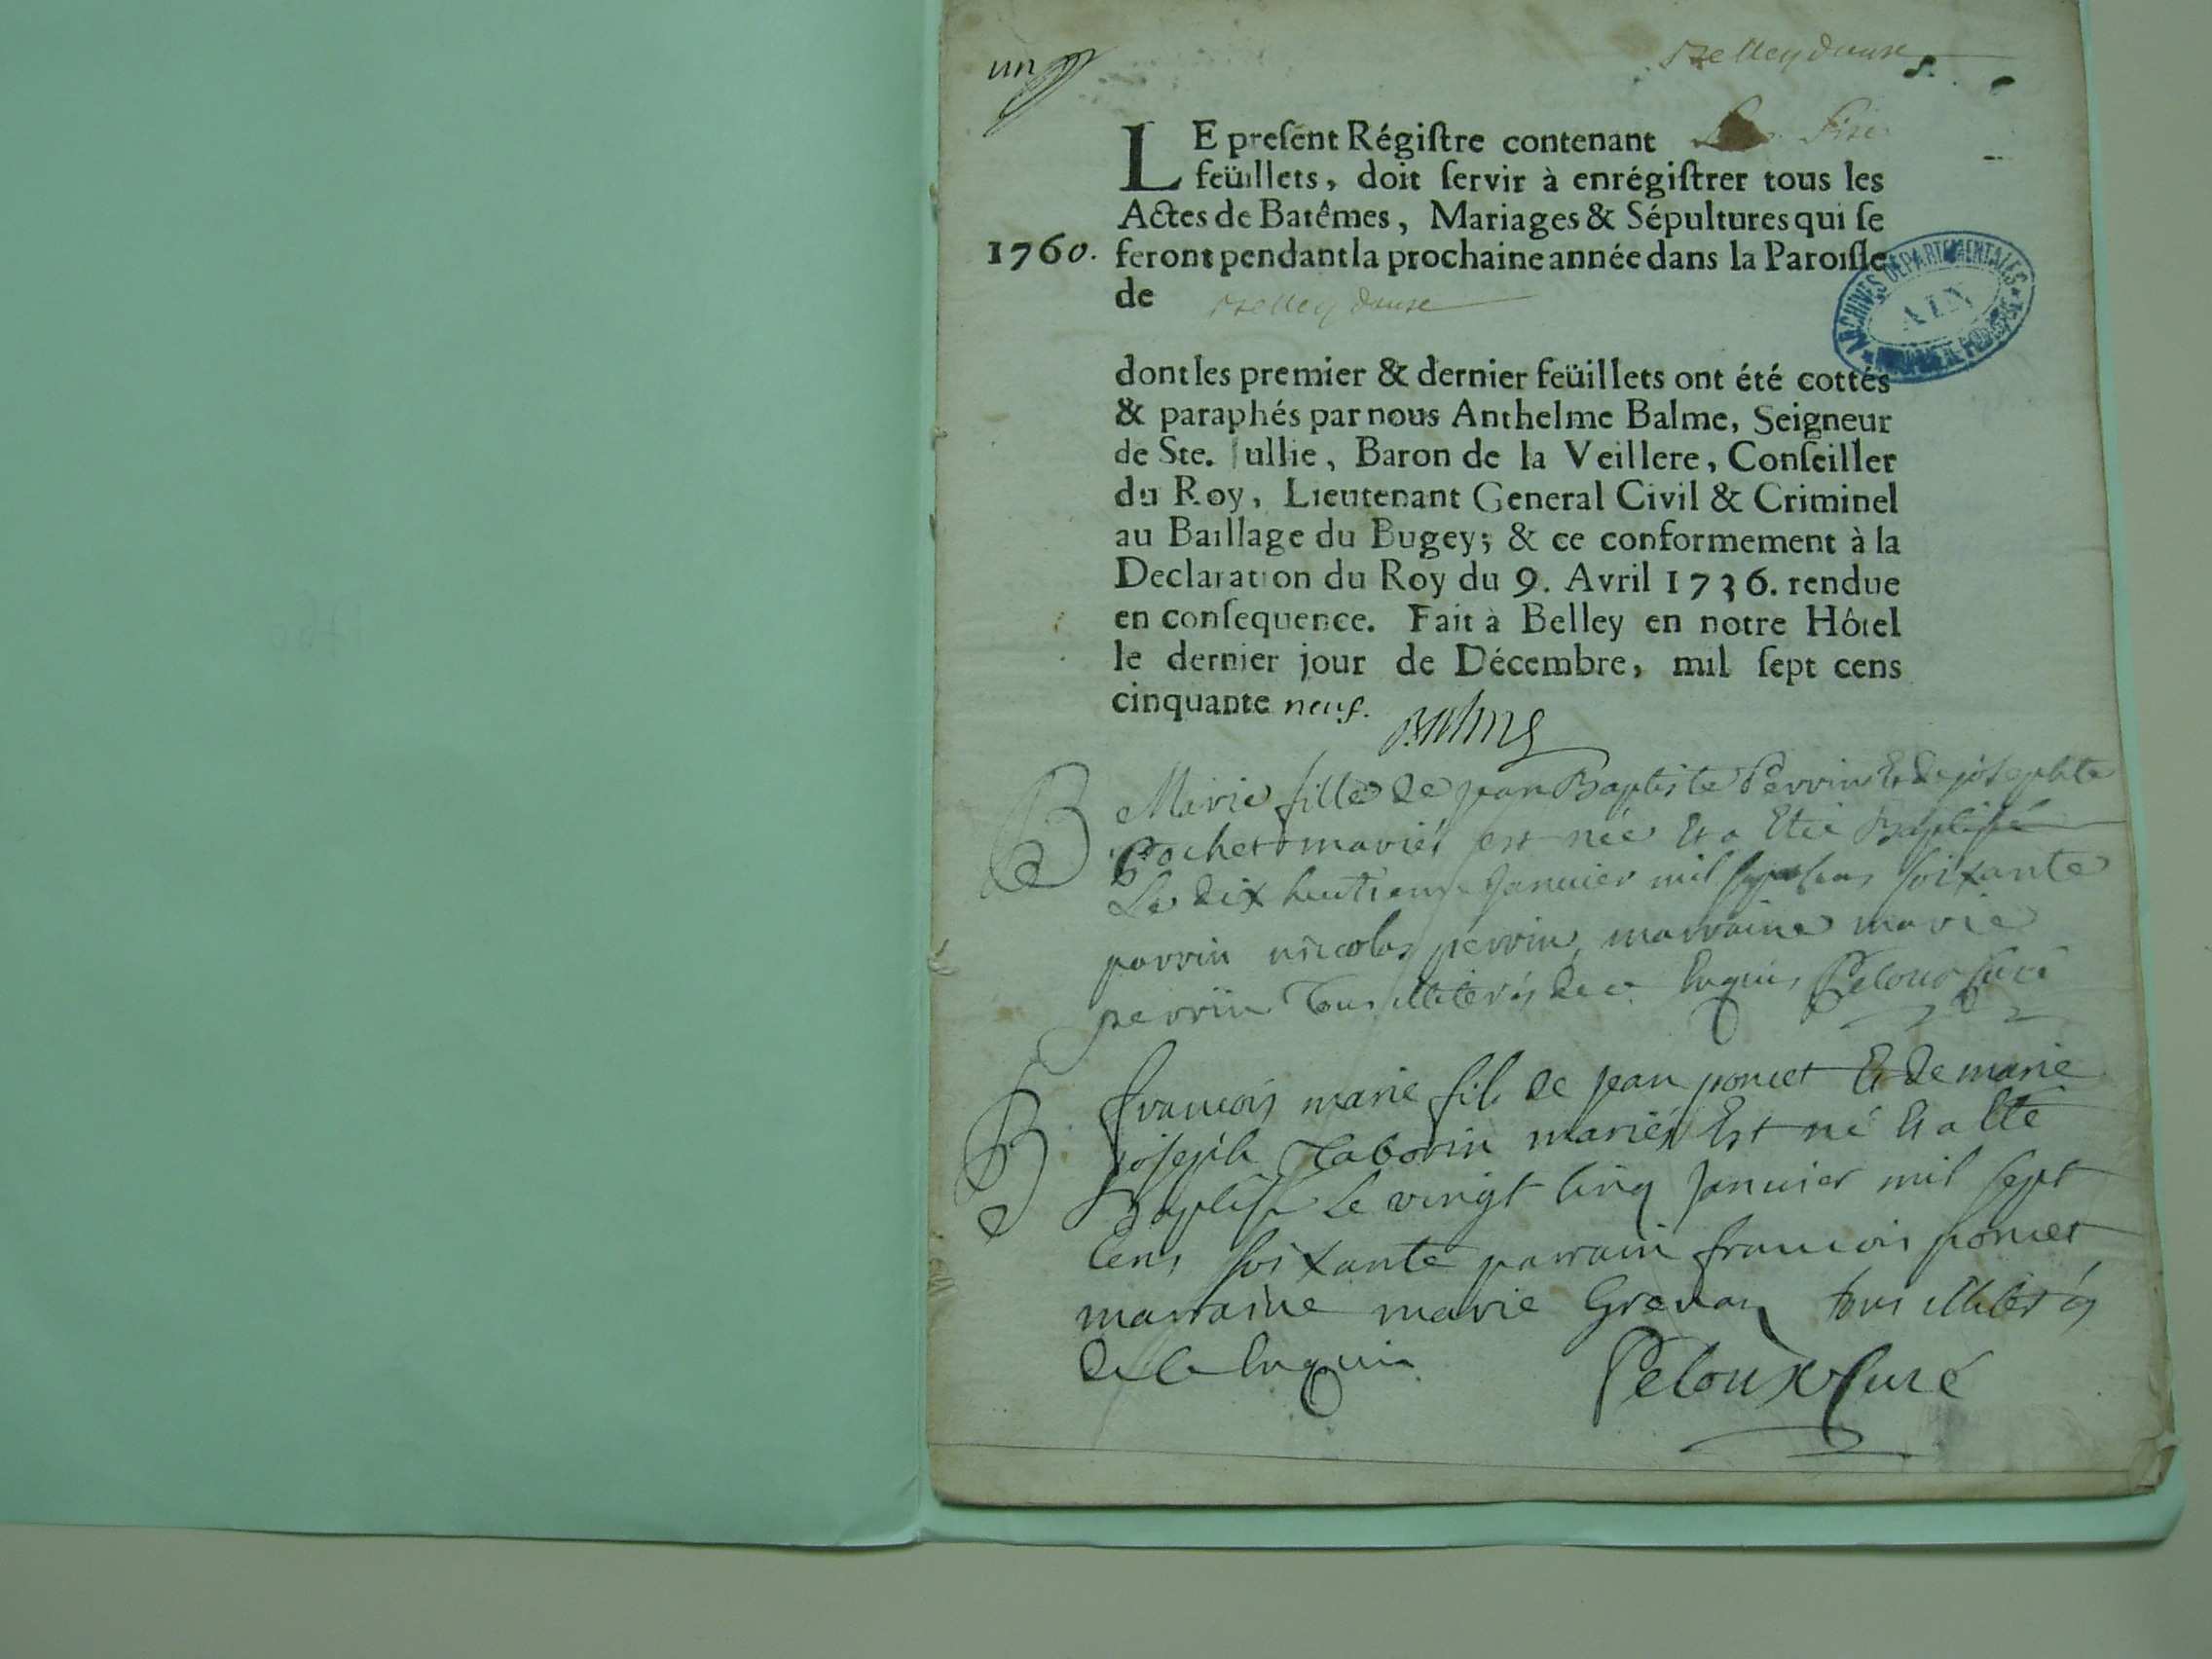 un
Belleydoux
LE preſent Régiſtre contenant
feüillets, doit ſervir à enrégiſtrer tous les
Actes de Batêmes, Mariages & Sépultures qui ſe
1760. feront pendant la prochaine année dans la Paroiſſe
de Belleydoux
ARCHIVES DÉPARTEMENTALES AIN
dont les premier & dernier feüillets ont été cottés
& paraphés par nous Anthelme Balme, Seigneur
de Ste. Jullie, Baron de la Veillere, Conſeiller
du Roy, Lieutenant General Civil & Criminel
au Baillage du Bugey; & ce conformement à la
Declaration du Roy du 9. Avril 1736. rendue
en conſequence. Fait à Belley en notre Hôtel
le dernier jour de Décembre, mil ſept cens
cinquante neuf. Balme
B Marie fille de jean Baptiste Perrin Et de josephte
Pochet mariés est née Et a Eté Baptisée
Le dix huitieme janvier mil sept cens soixante
parrin nicolas perrin marraine marie
perrin tous illiterés de ce Enquis Peloux Curé
B francois marie fils de jean poncet Et de marie
joseph Taborin mariés Est né Et a Eté
Baptisé Le vingt cinq janvier mil sept
Cens soixante parrain francois poncet
marraine marie tous illiterés
de Ce Enquis Peloux Curé